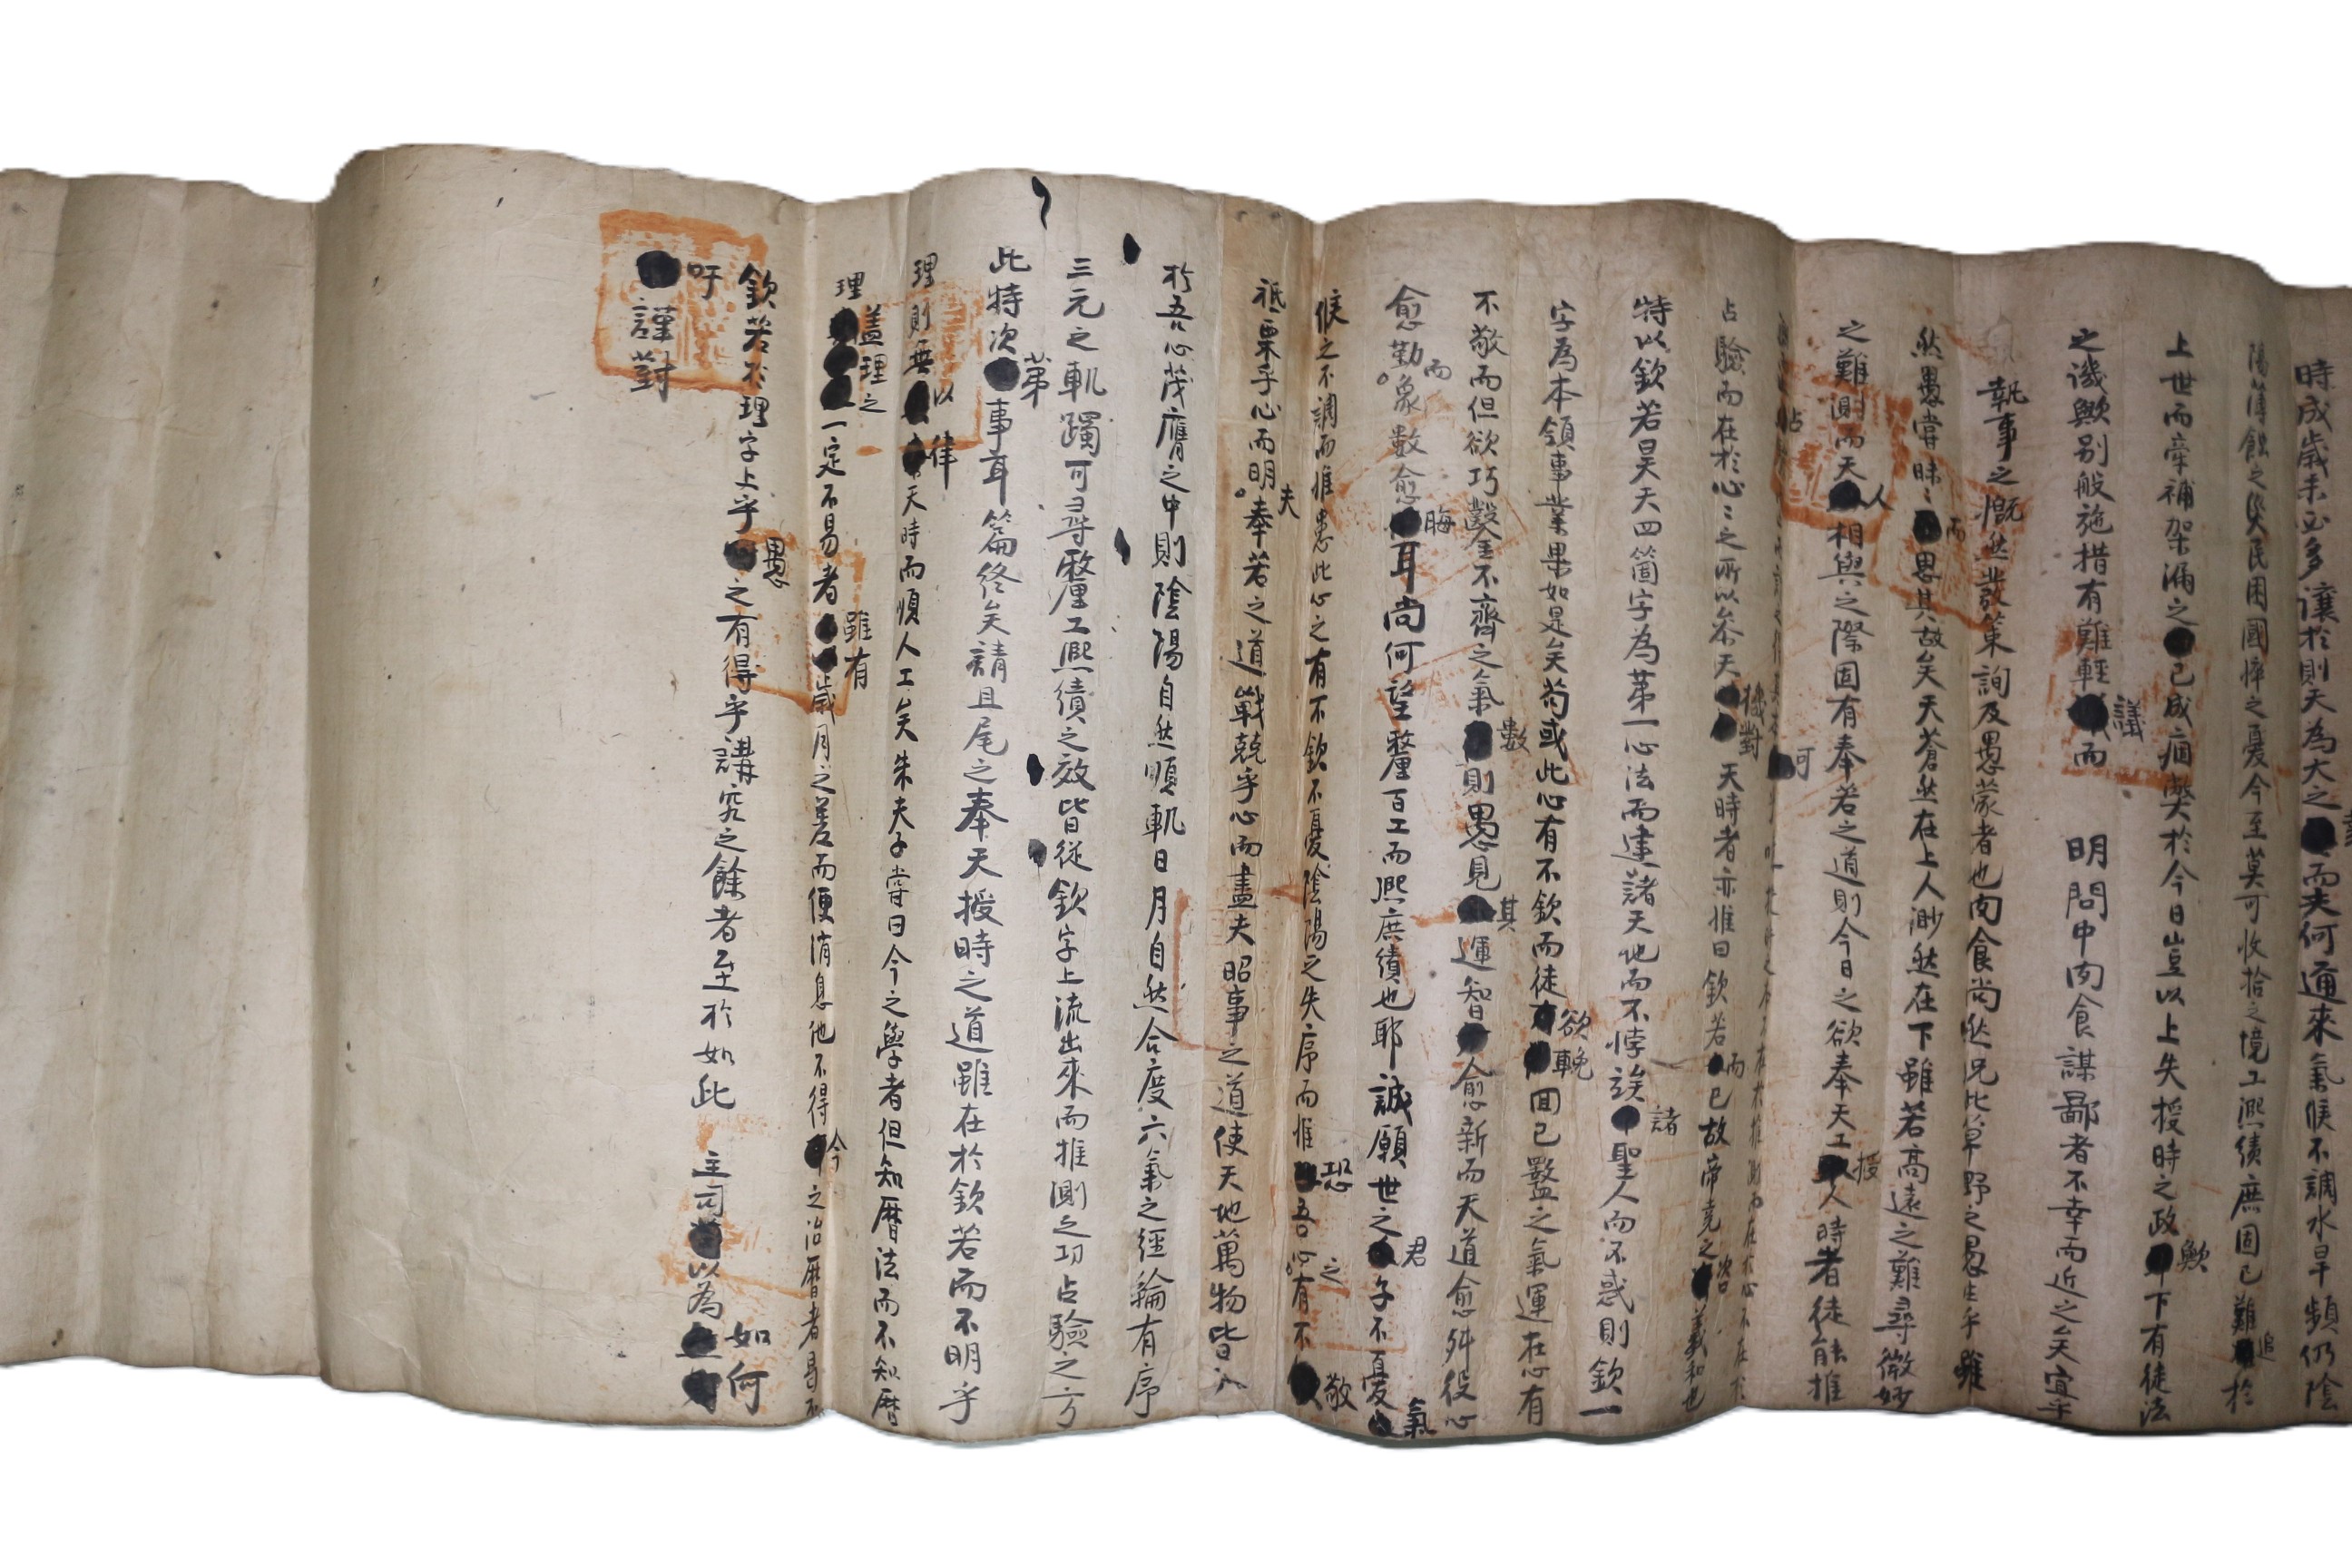 時成歲未必多讓於則天爲大之而夫何邇來氣候不調水旱頻仍陰
陽薄蝕之災民困國瘁之憂今至莫可收拾之境工熙績庶固已難追於
上世而牽補架漏之已成痼弊於今日豈以上失授時之政歟下有徒法
之譏歟別般施措有難輕議而 明問中肉食謀鄙者不幸而近之矣宜乎
執事之慨然發策詢及愚蒙者也肉食尚然況此草野之愚生乎雖
然愚嘗昧昧而思其故矣天蒼然在上人渺然在下雖若高遠之難尋微妙
之難測而天人相與之際固有奉若之道則今日之欲奉天工授人時者徒能推
占驗而在於心心之所以參天機對天時者亦惟曰欽若而已故帝堯之咨羲和也
特以欽若昊天四箇字爲第一心法而建諸天地而不悖諸聖人而不惑則欽一
字爲本領事業果如是矣苟或此心有不欽而徒欲輓回已盭之氣運在心有
不敬而但欲巧鑿不齊之氣數則愚見其運智愈新而天道愈舛役心
愈勤而象數愈晦耳尚何望釐百工而熙庶績也耶誠願世之君子不憂氣
候之不調而惟患此心之有不欽不憂陰陽之失序而惟恐吾心之有不敬
祗栗乎心而明夫奉若之道戰兢乎心而盡夫昭事之道使天地萬物皆
於吾心茂膺之中則陰陽自然順軌日月自然合度六氣之經綸有序
三元之軌躅可尋釐工熙績之效皆從欽字上流出來而推測之功占驗之方
此特次第事耳篇終矣請且尾之奉天授時之道雖在於欽若而不明乎
理則無以律天時而順人工矣朱夫子嘗曰今之學者但知曆法而不知曆
理蓋理之一定不易者雖有歲月之差而便消息他不得今之治曆者曷不
欽若於理字上乎愚之有得乎講究之餘者至於如此 主司以爲如何
吁謹對